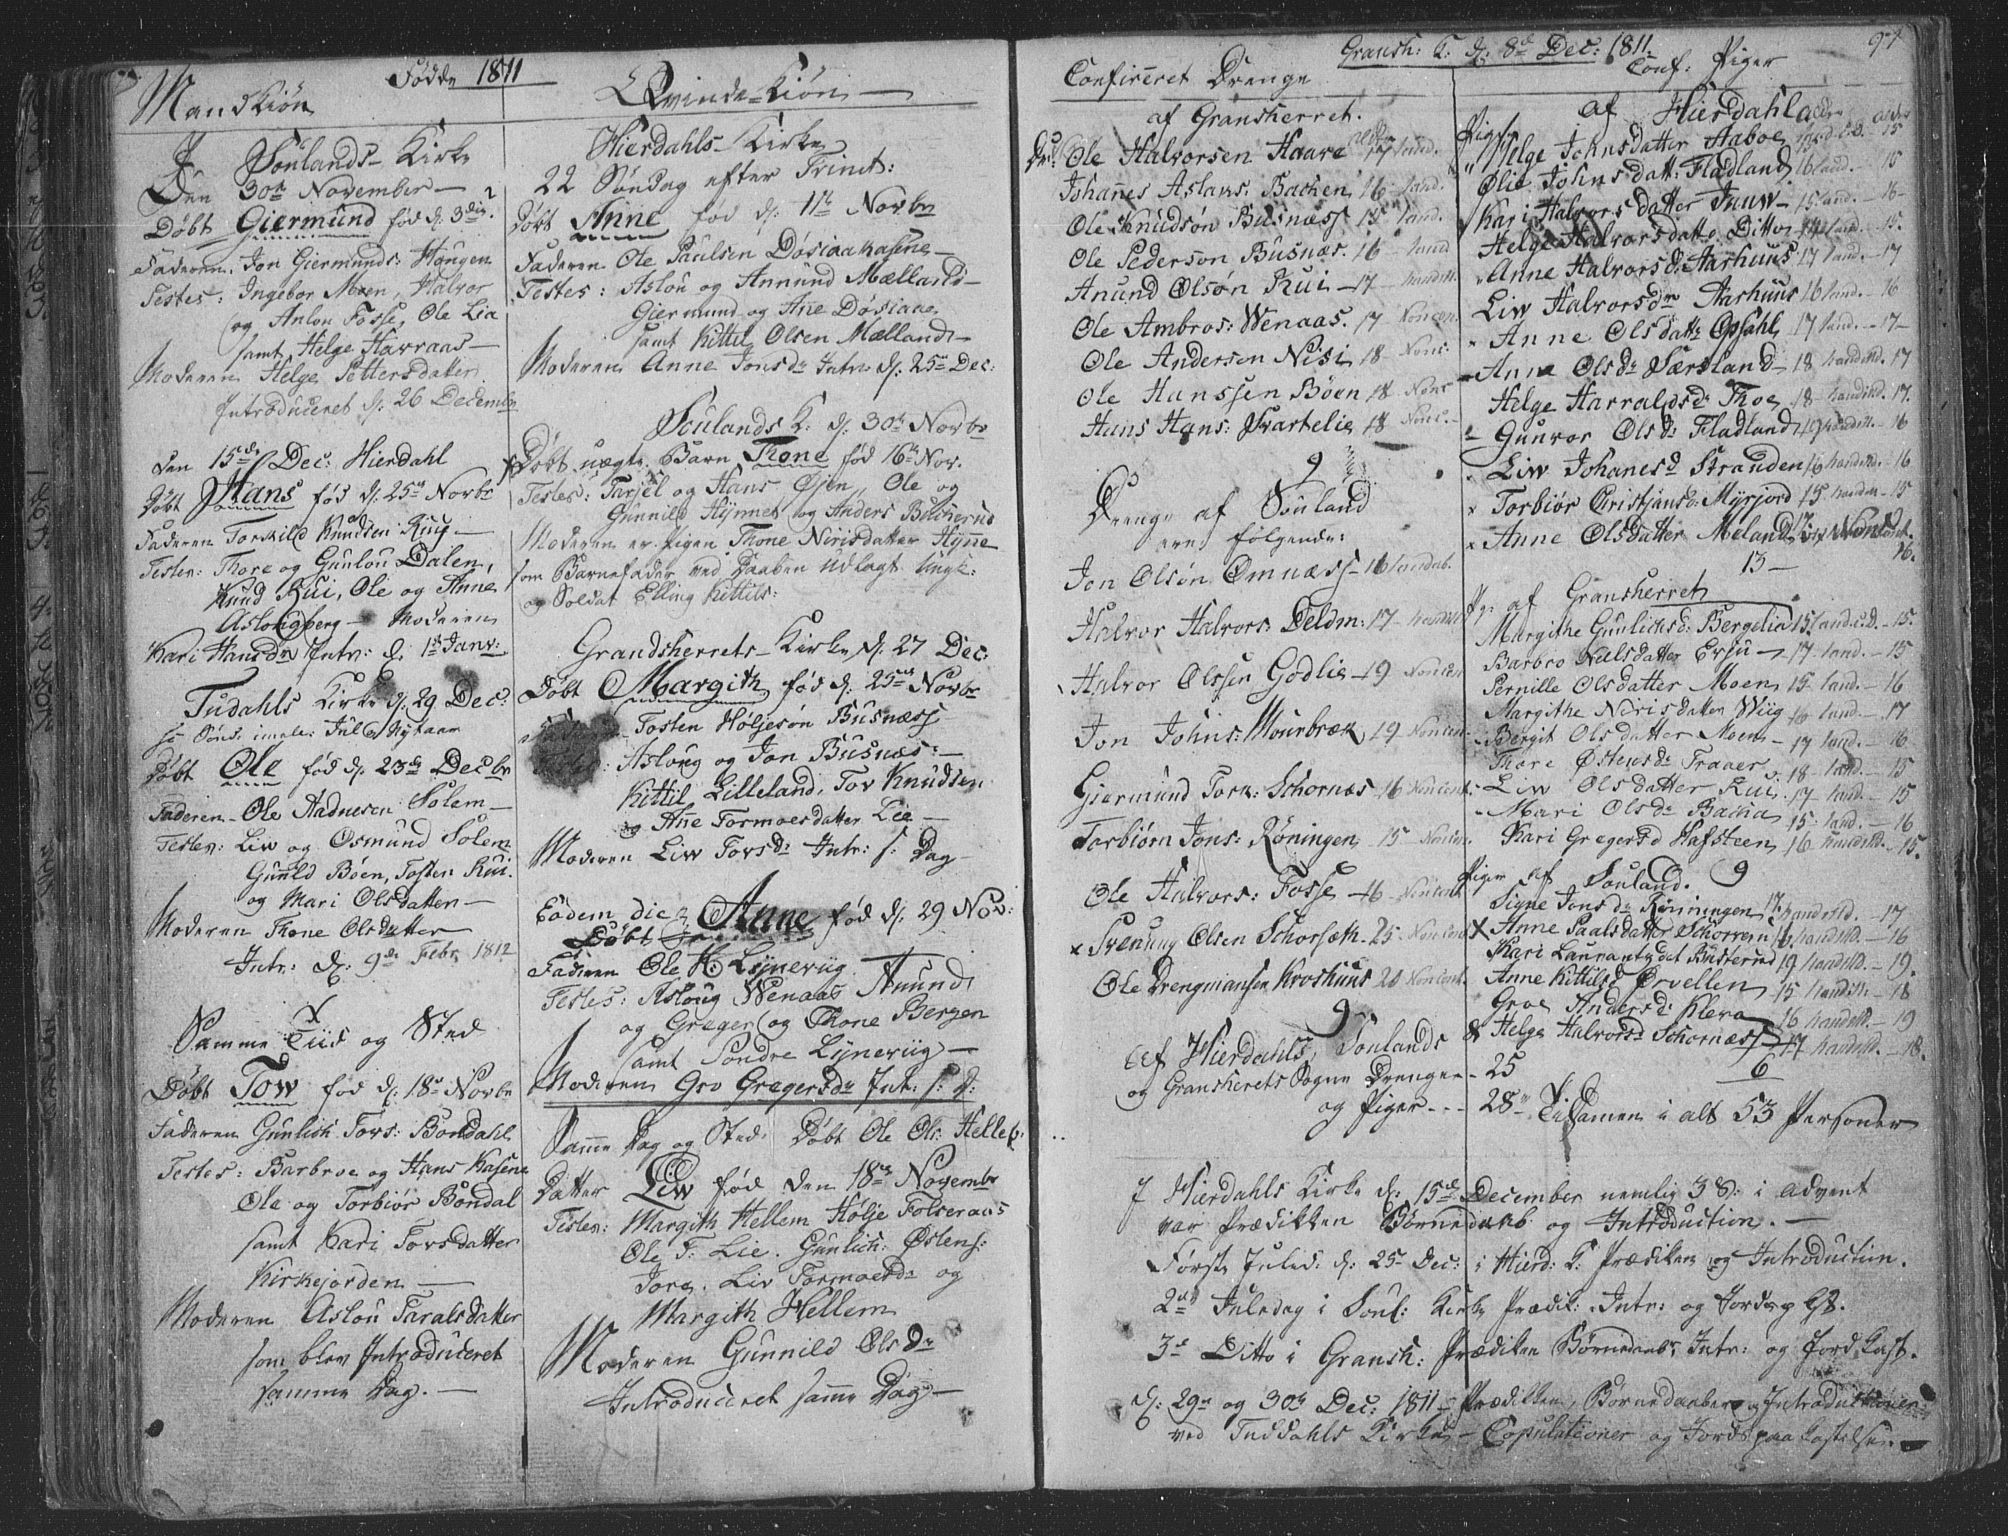 Fødde 1811
Mandkiøn
I Soulands Kirke
Den 30te November
Døbt Giermund fød d. 3die
Faderen Jon Giermunds: Haugen
Testes: Ingebor Moen, Halvor
og Anlou Fosse, Ole Lia
samt Helge Havraas
Moderen Helge Pettersdatter
Introduceret d. 26 Decembr
den 15de Dec: Hierdahl
Døbt Hans fød d: 25de Novbr
Faderen Torkild Knudsen Ruy
Testes: Thore og Gunlou Dalen,
Knud Rui, Ole og Anne
Aslongberg – Moderen
Kari Hansdr Intr: d. 1te Janv:
Tudahls Kirke d. 29 Dec:
Sønd: imel: Jul og Nytaar
Døbt Ole fød d. 23de Decbr
Faderen Ole Aadnesen Solem
Testes: Liv og Osmund Solem
Gunild Bøen, Tosten Rui.
og Mari Olsdatter
Moderen Thone Olsdatter
Intr: d: 9de Febr 1812
Samme Tiid og Sted
Døbt Tow fød d. 18de Novbr
Faderen Gunlich Tovs: Bondahl
Testes: Barbroe og Hans Kasene
Ole og Torbiør Bondal
samt Kari Torsdatter
Kirkejorden
Moderen Aslou Taralsdatter
som blev Introduceret
samme Dag.
Qvinde-Kiøn
Hierdahls Kirke
22 Søndag efter Trinit:
Døbt Anne fød d. 11te Novbr
Faderen Ole Paulsen Døsiaakasene
Testes: Aslou og Annund Mælland
Giermund og Ane Døsiaae
samt Kittil Olsen Mælland
Moderen Anne Jonsdr Intr: d. 25de Dec:
Soulands K. d. 30te Novbr
Døbt uægte Barn Thone fød 16de Nov.
Testes: Tarjel og Hans Øien, Ole og
Gunnild Hynne og Anders Bakkerud
Moderen er Pigen Thone Nirisdatter Hynne
som Barnefader ved Daaben udlagt Ungk:
og Soldat Elling Kittils:
Grandsherrets Kirke d. 27 Dec:
Døbt Margith fød d. 25de Novbr
Tosten Høljesøn Busnæss
Asloug og Jon Busnæs:
Kittil Lilleland, Tov Knudsen
og Ane Tormoesdatter Lie
Moderen Liw Torsdr Intr: s: Dag
Eodem die Anne fød d. 29 Nov:
Døbt
Faderen Ole H: Lynerüg
Testes: Asloug Wenaas Anund
og Greger og Thone Bergen
samt Sondre Lynerüg
Moderen Gro Gregersdr Intr: s: D:
Samme Dag og Sted Døbt Ole Ols: Hellem
Datter Liw fød den 18de Novembr
Testes: Margith Hellem Hølje Folseraas
Ole T: Lie. Gunlich: Østens:
Jore. Liv Tormoesdr og
Margith Hellem
Moderen Gunnild Olsdr
Introduceret samme Dag
Gransh: K. d. 8de Dec: 1811.
97
Confirmeret Drenge
af Gransherret.
Dr: Ole Halvorsen Haave 17 land.
Johanes Aslans: Bachen 16 land.
Ole Knudson Busnæss 15 land.
Ole Pederson Busnæs 16 land
Anund Olsøn Rui 17 handskl.
Ole Ambros: Wenaas. 17 Noncon.
Ole Andersen Nisi 18 Nonc:
Ole Hanssen Bøen 18 Nonc
Hans Hans: Svartelie 18 Nonc.
9
Drenge af Souland
ere følgende:
Jon Olsøn Omnæss 16 landab.
Halvor Halvors: Deldm: 17 handskl
Halvor Olssen Godlie 19 Noncon
Jon Johns: Mourbræk 19 Noncon
Giermund Tork: Schornæs 16 Noncent.
Torbiørn Jons: Røningen 15 Noncon
Ole Halvors: Fosse 16 Noncent
x Svenung Olsen Schorseth 25 Noncon
Ole Drengmansen Kroshuus 20 Noncent.
9
Af Hierdahls, Soulands
og Gransherets Sogne Drenge 25
og Piger --- 28
Tilsamen i alt 53 Personer
Conf: Piger
af Hierdahl
Piger Helge Johnsdatter Aaboe 15
Olie Johnsdatt: Fladland 16 land. 15
Kari Halvorsdatter Juuv 15 land. 16
Helge Halvorsdattr Ditto land. 15.
Anne Halvorsd: Aarhuus 17 land. 17
Liw Halvorsdr Aarhuus 16 land. 16
Anne Olsdattr Opsahl 17 land. 17
Anne Olsdr Særsland 18 handskl. 17
Helge Harraldsdr Thoe 18 handskl. 17.
Gunvor Olsd: Fladland 19 handskl. 16
Liw Johanesd Stranden 16 handskl. 16
Torbiør Christjansd: Myrjord 15 handsk 15
Anne Olsdatter Meland 17
16.
13
Pg: af Gransherret
Margithe Gunlichsd: Bergelid 15 land. 15.
Barbro Nielsdatter Erju 17 land. 15
Pernille Olsdatter Moen 15 land. 16
Margithe Nirisdatter Wiig 16 land. 17
Bergit Olsdatter Moen 17 land. 16
Thore Østensdr Traaer 18 land. 15
Liw Olsdatter Rui 17 land. 15
Mari Olsdr Bacha 15 land. 16
Kari Gregersd Hafsteen 16 handskl. 15.
9
Piger af Souland.
Signe Jonsdr Røningen 17 handskl. 17
x Anne Paalsdatter Schorren 16 handskl. 16
Kari Laurantzdat Busterud 19 handskl. 19.
Anne Kittilsd Ørvellen 15 handsk. 18
Groe Andersd: Kleva 16 handskl. 19
Helge Halvorsd Schornæss 17 handskl. 18.
6
I Hierdahls Kirke d: 15de December nemlig 3 S: i advent
var Prædikken Børnedaab og Introduction.
Første Juled: d: 25de Dec: i Hierd: K: Prædiken og Introduction.
2den Juledag i Soul: Kirke Prædik: Intr: og Jordp Kst.
3de Ditto i Gransh: Prædiken Børnedaab, Intr: og Jord Kast.
d: 29de og 30te Dec: 1811 Prædikken, Børnedaaber og Introductioner
ved Tuddahls Kirke – Copulationer og Jordspaakastelser